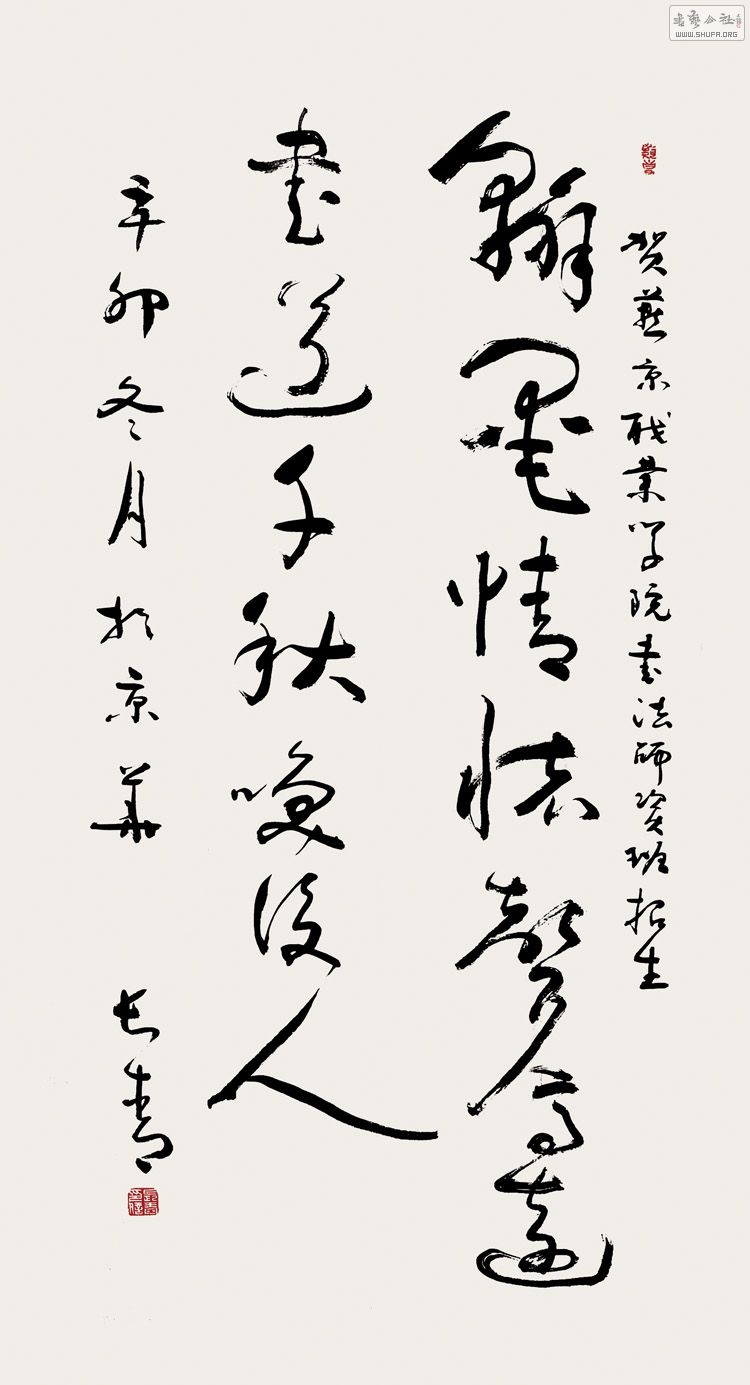 書藝公社
WWW.SHUFA.ORG
賀燕京職業学院書法師資班招生
翰墨情懷聲高遠
書道千秋喚後人
辛卯冬月於京華 長青